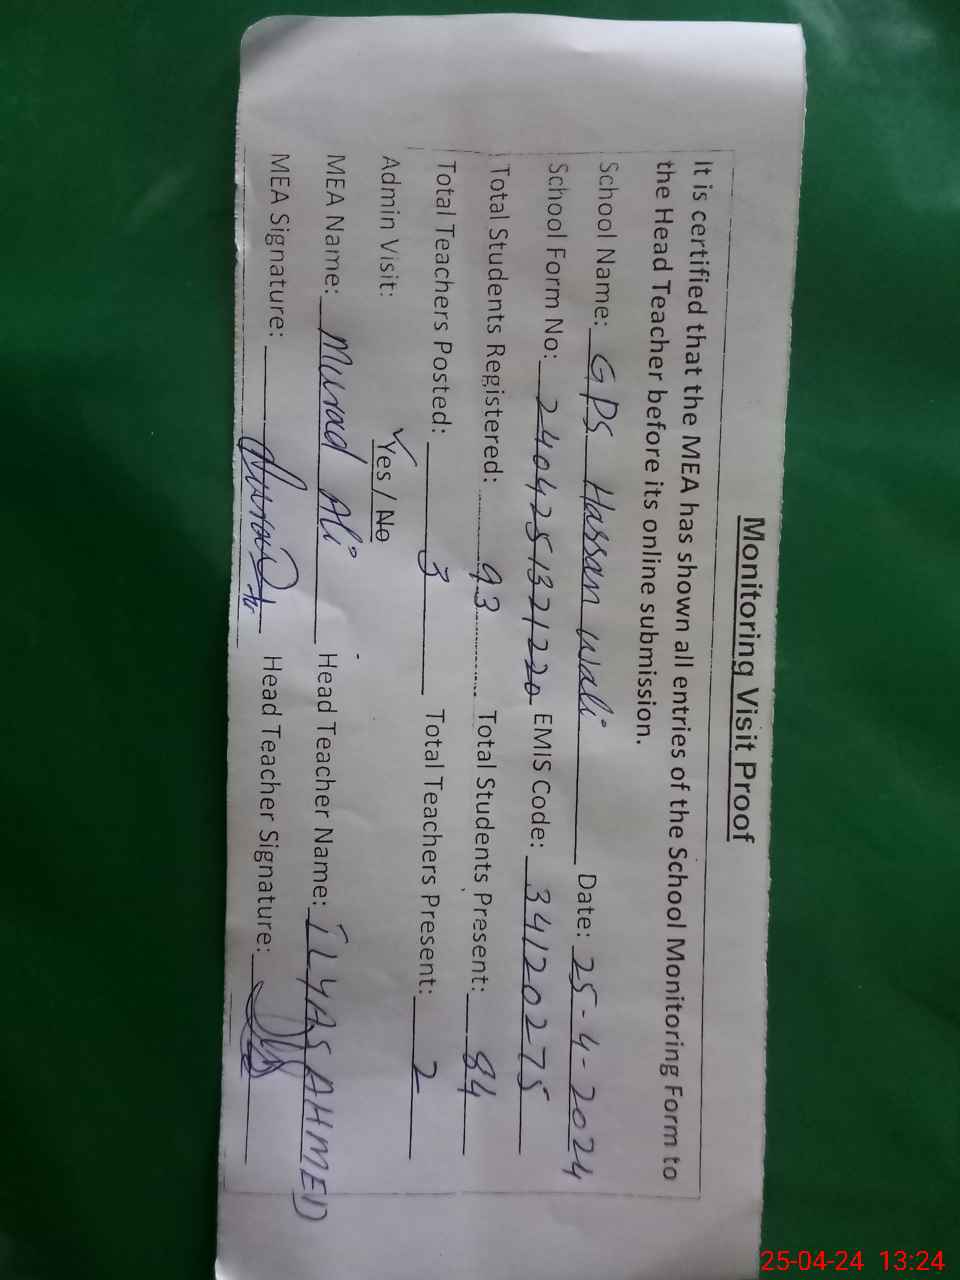 Monitoring Visit Proof
It is certified that the MEA has shown all entries of the School Monitoring Form to
the Head Teacher before its online submission.
School Name: GPS Hassan Wali Date: 25-4-2024
School Form No: 2404251371220 EMIS Code: 34120275
Total Students Registered: 93 Total Students Present: 84
Total Teachers Posted: 3 Total Teachers Present: 2
Admin Visit: Yes / No
MEA Name: Murad Ali Head Teacher Name: ILYAS AHMED
MEA Signature: Head Teacher Signature:
25-04-24 13:24